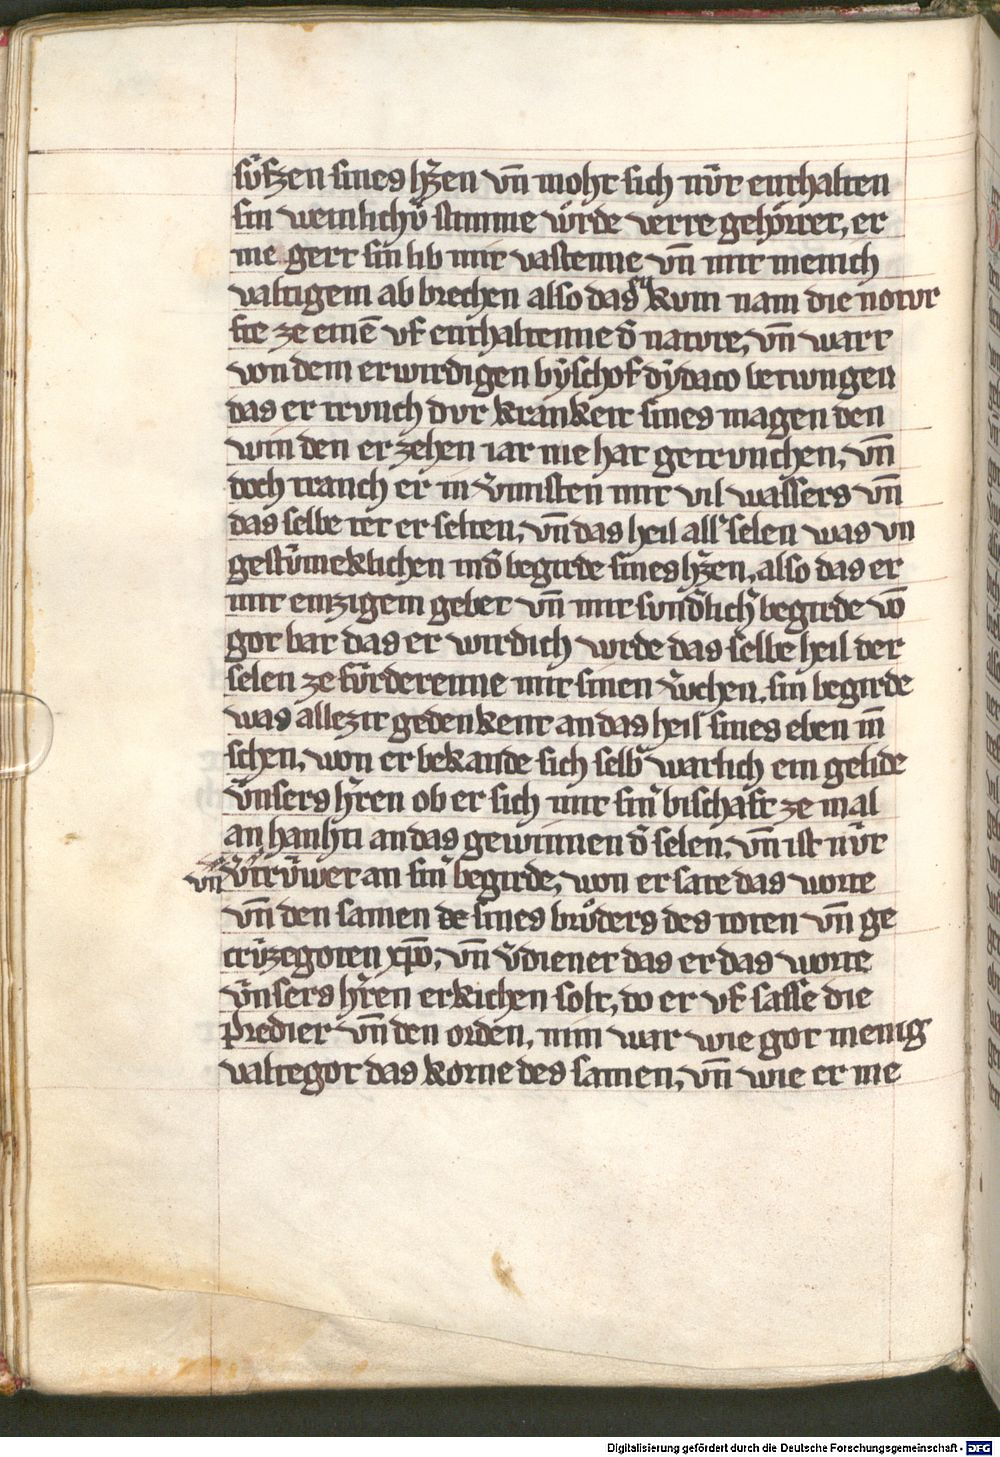 súfzen sines h̾zen vn̄ moht sich nv̾r enthalten
sin weinlichv̾ stimme wu̾rde verre gehörret, er
me gert sin lib mit vastenne vn̄ mit menich
valtigem ab brechen also das kvm nam die notvr
fte ze eine̅ vf enthaltenne d̾ natvre, vn̄ wart
von dem erwirdigen byschof dydaco betwngen
das er trvnch dvr krankeit sines magen den
win den er zehen iar nie hat getrvnchen, vn̄
doch tranch er in v̾nnisten mit vil wassers vn̄
das selbe tet er selten, vn̄ das heil all̾ selen was vn
gestv̾meklichen in d̾ begirde sines h̾zen, also das er
mit emzigem gebet vn̄ mit svnd̾lich̾ begirde vo̅
got bat das er wirdich wrde das selbe heil der
selen ze fv̾rderenne mit sinen v̾chen, sin begirde
was allezit gedenkent an das heil sines eben m̄
schen, won er bekande sich selb̾ warlich ein gelide
v̾nsers h̾ren ob er sich mit sin̾ bischaft ze mal
an hanhti an das gewinnen d̾ selen, vn̄ ist nv̾t
vn̄ v̾trv̾wet an sin̾ begirde, won er sate das worte
vn̄ den samen de sines brůders des toten vn̄ ge
crv̾zegoten xp̄o, vn̄ v̾diener das er das worte
v̾nsers h̾ren erkichen solt, do er vf sasse die
predier vn̄ den orden, nim war wie got menig
valtegot das korne des samen, vn̄ wie er me
Digitalisierung gefördert durch die Deutsche Forschungsgemeinschaft - DFG